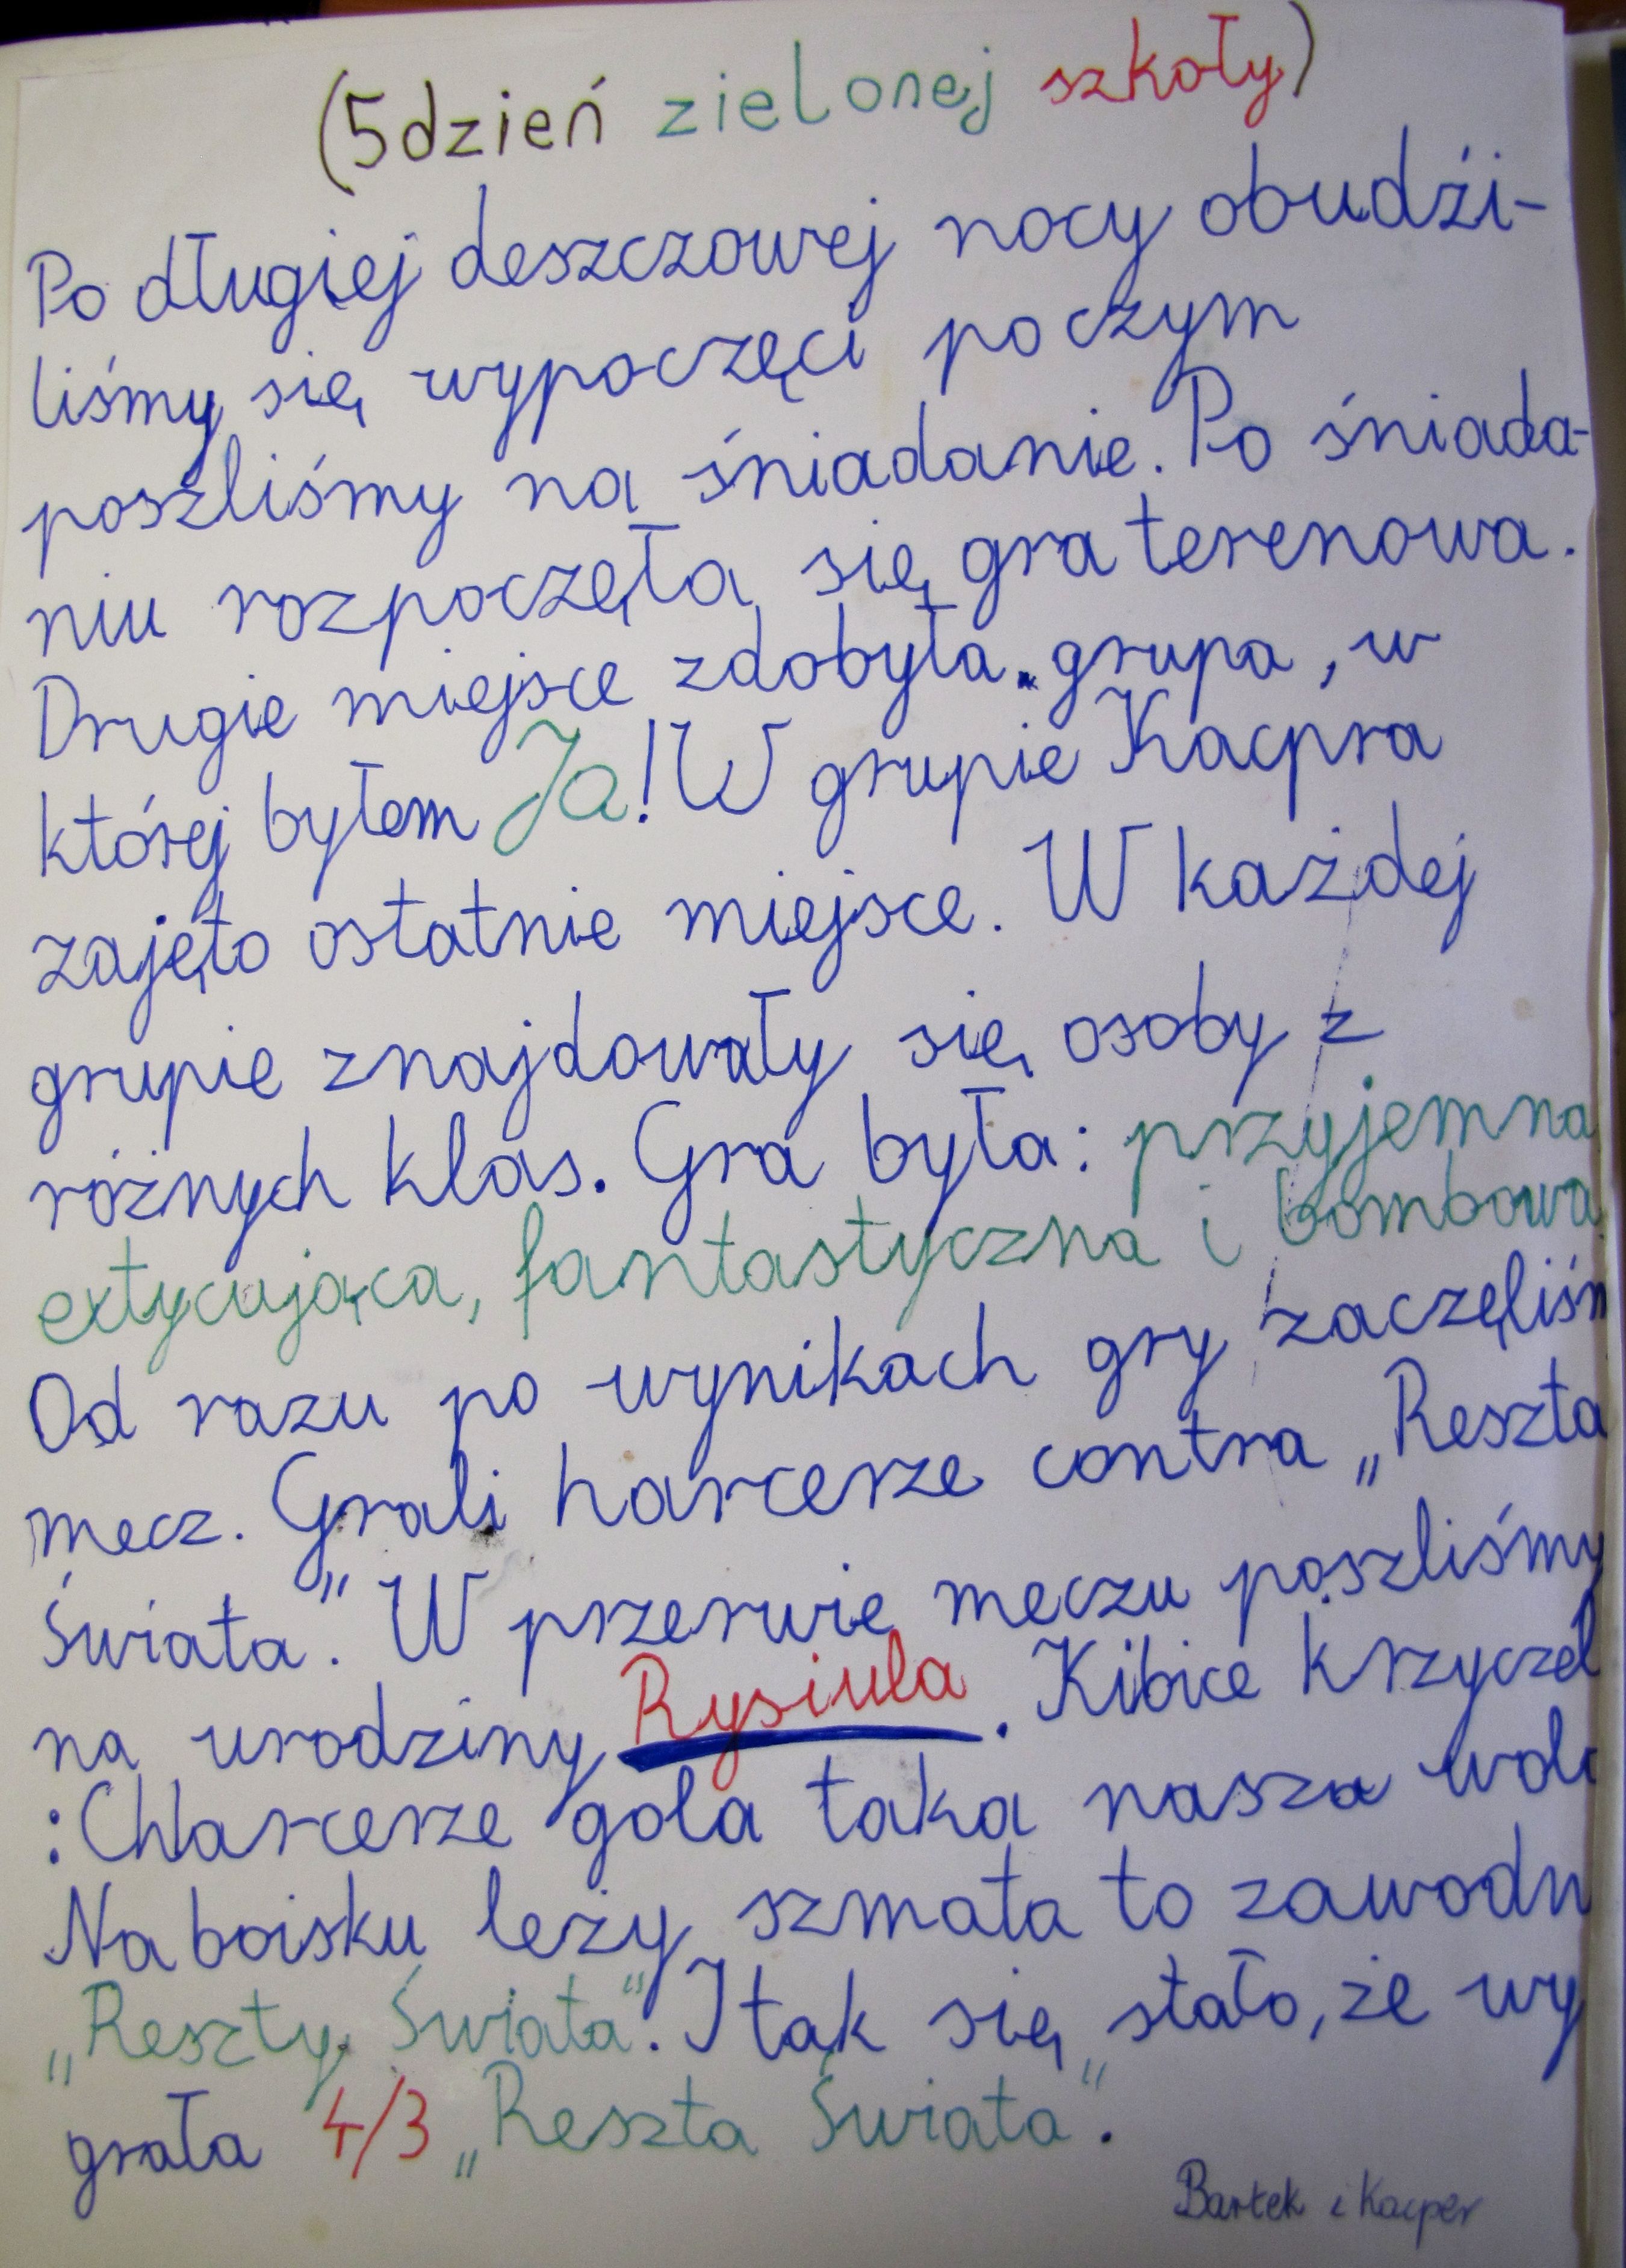 (5dzień zielonej szkoły)
Po długiej deszczowej nocy obudźi-
liśmy się wypoczęci po czym
poszliśmy na śniadanie. Po śniada-
niu rozpoczęła się gra terenowa.
Drugie miejsce zdobyła grupa, w
której byłem Ja! W grupie Kacpra
zajęto ostatnie miejsce. W każdej
grupie znajdowały się osoby z
różnych klas. Gra była: przyjemna
extycująca, fantastyczna i bombowa
Od razu po wynikach gry zaczęliśm
mecz. Grali harcerze contra „Reszta
Świata". W przerwie meczu poszliśmy
na urodziny Rysiula. Kibice krzyczel
: Chlarcerze gola taka nasza wola
Na boisku leży szmata to zawodn
„Reszty Świata". I tak się stało, że wy
grała 4/3 „Reszta Świata".
Bartek i Kacper